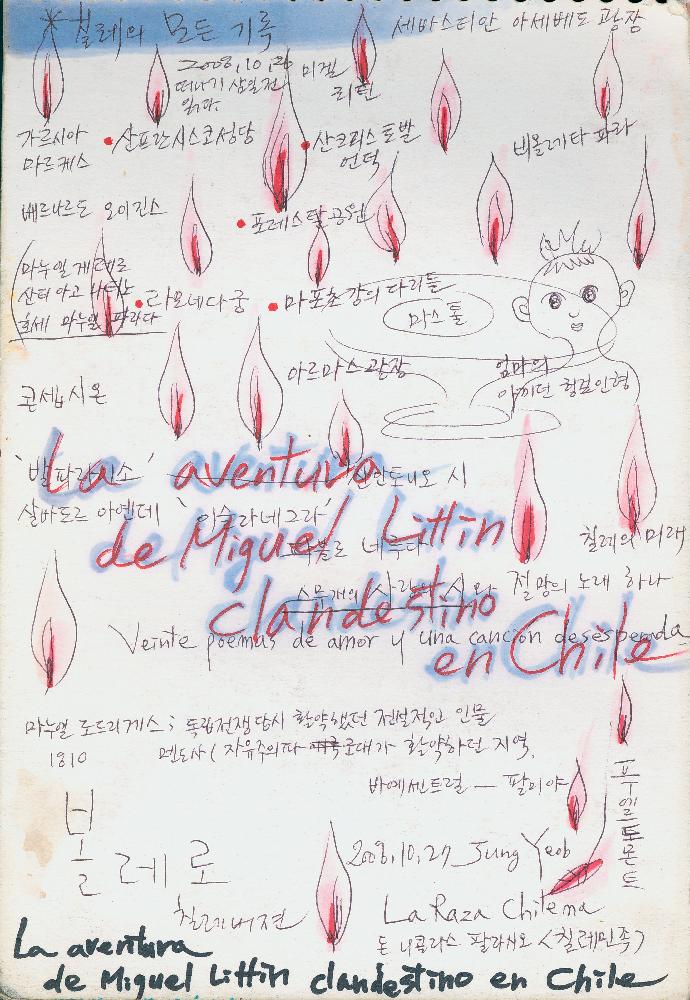 칠레의 모든 기록
세바스티안 아세베도 광장
2008, 10, 26
떠나기 삼일전
읽다.
미겔
리틴
가르시아
마르케스
산프란시스코성당
산크리스토발
언덕
비올레타 파라
베르나르도 오이긴스
포레스탈 공원
마누엘
산티아고
호세 마누엘 파라다
라모네다 궁
마포초강의 다리들
마스툴
아르마스광장
엄마의
아끼던 인형
콘셉시온
'발파라이소'
산안토니오 시
La aventura
살바도르 아옌데 '이슬라네그라'
de Miguel Littin
파블로 네루다
칠레의 미래
스무개의 사랑의 시와 절망의 노래 하나
clandestino
Veinte poemas de amor y una canción desesperada
en Chile
마누엘 로드리게스; 독립전쟁당시 활약했던 전설적인 인물
1810
멘도사 (자유주의파 군대가 활약하던 지역,
바예센트럴 — 팔미야
푸엘토몬트
볼레로
칠레버젼
2008, 10, 27 Jung Yeob
La Raza Chilena
돈 니콜라스 팔라시오 <칠레민족>
La aventura
de Miguel Littin clandestino en Chile